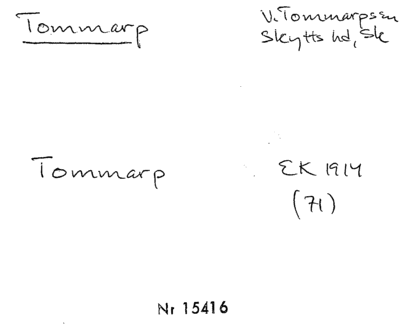 Tommarp
V. Tommarps sn
Skytts hd, Sk
Tommarp
EK 1914
(71)
Nr 15416